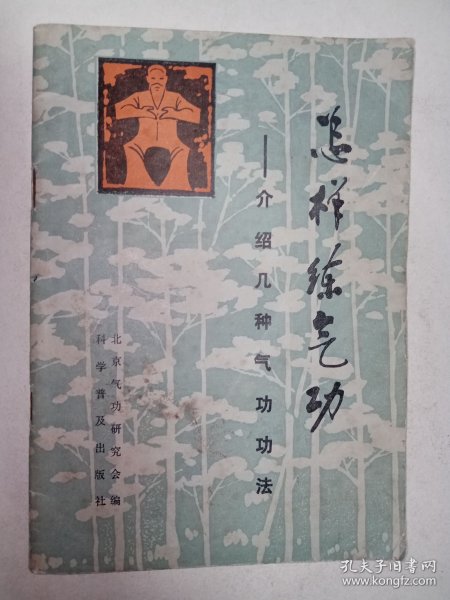 怎样练气功
——介绍几种气功功法
北京气功研究会编
科学普及出版社
孔夫子旧书网
www.kongfz.com